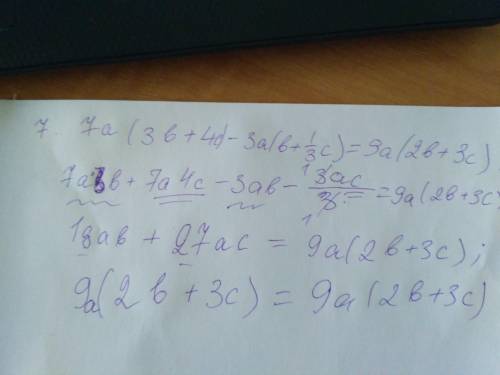 7. 7a (3b+4c)-3a(b+1/3c)=9a(2b+3c)
7a3b+7a4c-3ab-3ac/3=9a(2b+3c)
18ab+27ac=9a(2b+3c);
9a(2b+3c)=9a(2b+3c)